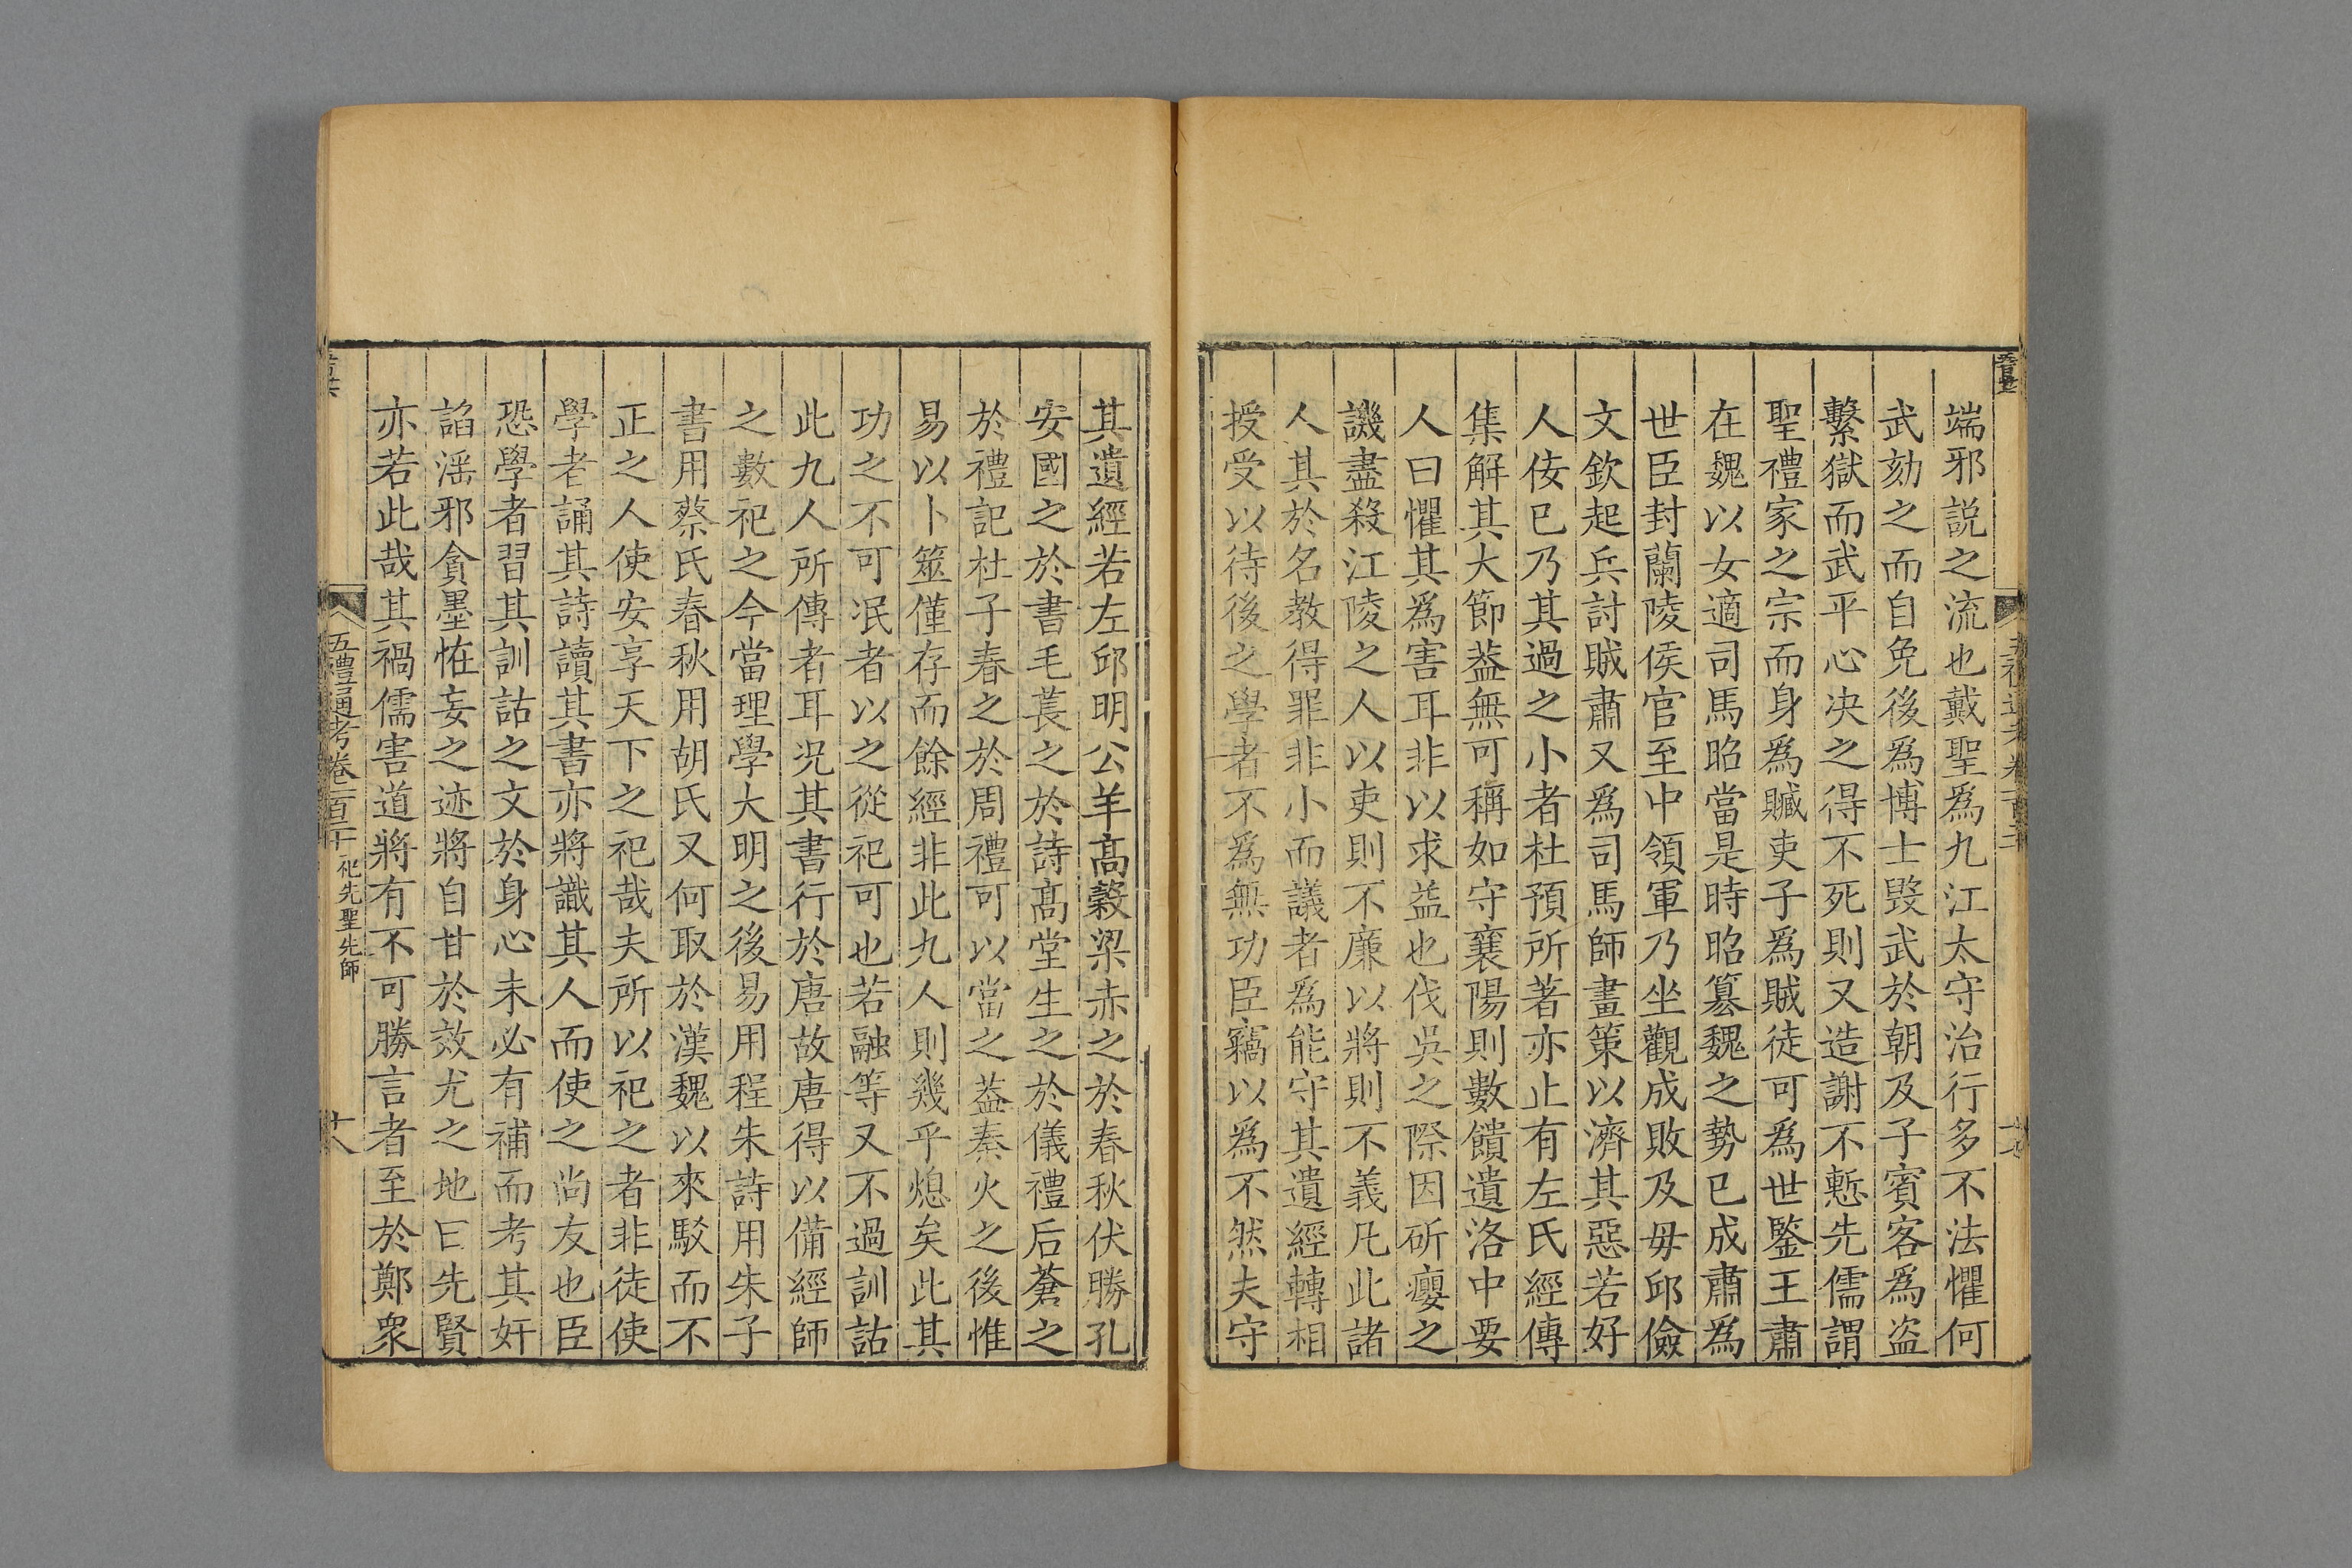 端邪説之流也戴聖爲九江太守治行多不法懼何
武劾之而自免後爲博士毁武於朝及子賓客爲盗
繫獄而武平心决之得不死則又造謝不慙先儒謂
聖禮家之宗而身爲贓吏子爲賊徒可爲世鑒王肅
在魏以女適司馬昭當是時昭簒魏之勢已成肅爲
世臣封蘭陵侯官至中領軍乃坐觀成敗及毋邱儉
文欽起兵討賊肅又爲司馬師畫策以濟其惡若好
人佞已乃其過之小者杜預所著亦止有左氏經傳
集解其大節葢無可稱如守襄陽則數饋遺洛中要
人曰懼其爲害耳非以求益也伐吳之際因斫癭之
譏盡殺江陵之人以吏則不廉以將則不義凡此諸
人其於名教得罪非小而議者爲能守其遺經轉相
授受以待後之學者不爲無功臣竊以爲不然夫守
其遺經若左邱明公羊髙糓梁赤之於春秋伏勝孔
安國之於書毛萇之於詩髙堂生之於儀禮后蒼之
於禮記杜子春之於周禮可以當之葢秦火之後惟
易以卜筮僅存而餘經非此九人則幾乎熄矣此其
功之不可冺者以之從祀可也若融等又不過訓詁
此九人所傳者耳况其書行於唐故唐得以備經師
之數祀之今當理學大明之後易用程朱詩用朱子
書用蔡氏春秋用胡氏又何取於漢魏以來駁而不
正之人使安享天下之祀哉夫所以祀之者非徒使
學者誦其詩讀其書亦將識其人而使之尚友也臣
恐學者習其訓詁之文於身心未必有補而考其奸
諂滛邪貪墨恠妄之迹將自甘於效尤之地曰先賢
亦若此哉其禍儒害道將有不可勝言者至於鄭衆
五禮通考卷一百二十 祀先聖先師
十八